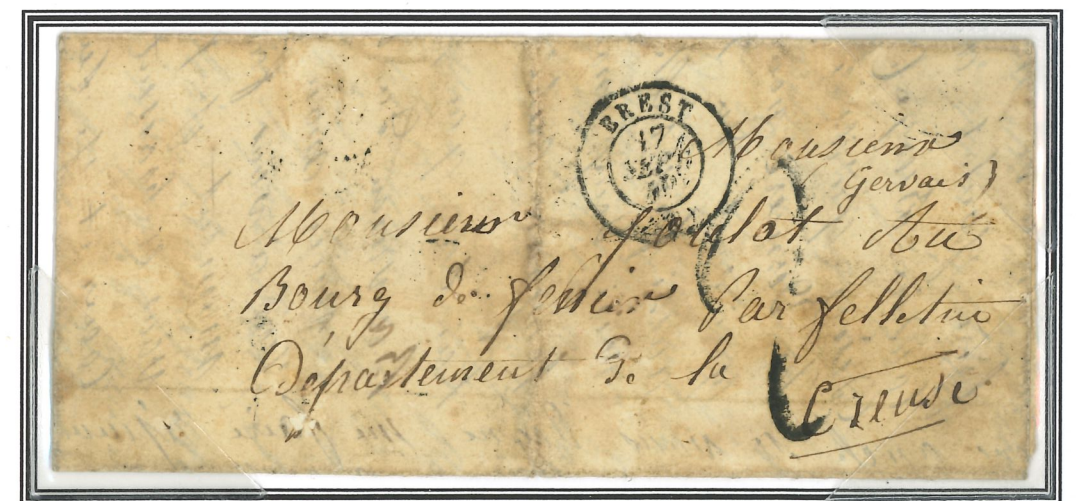 BREST
17
SEPT
Monsieur
Gervais
Monsieur Au
Bourg de Par felletin
Département De la
Creuse